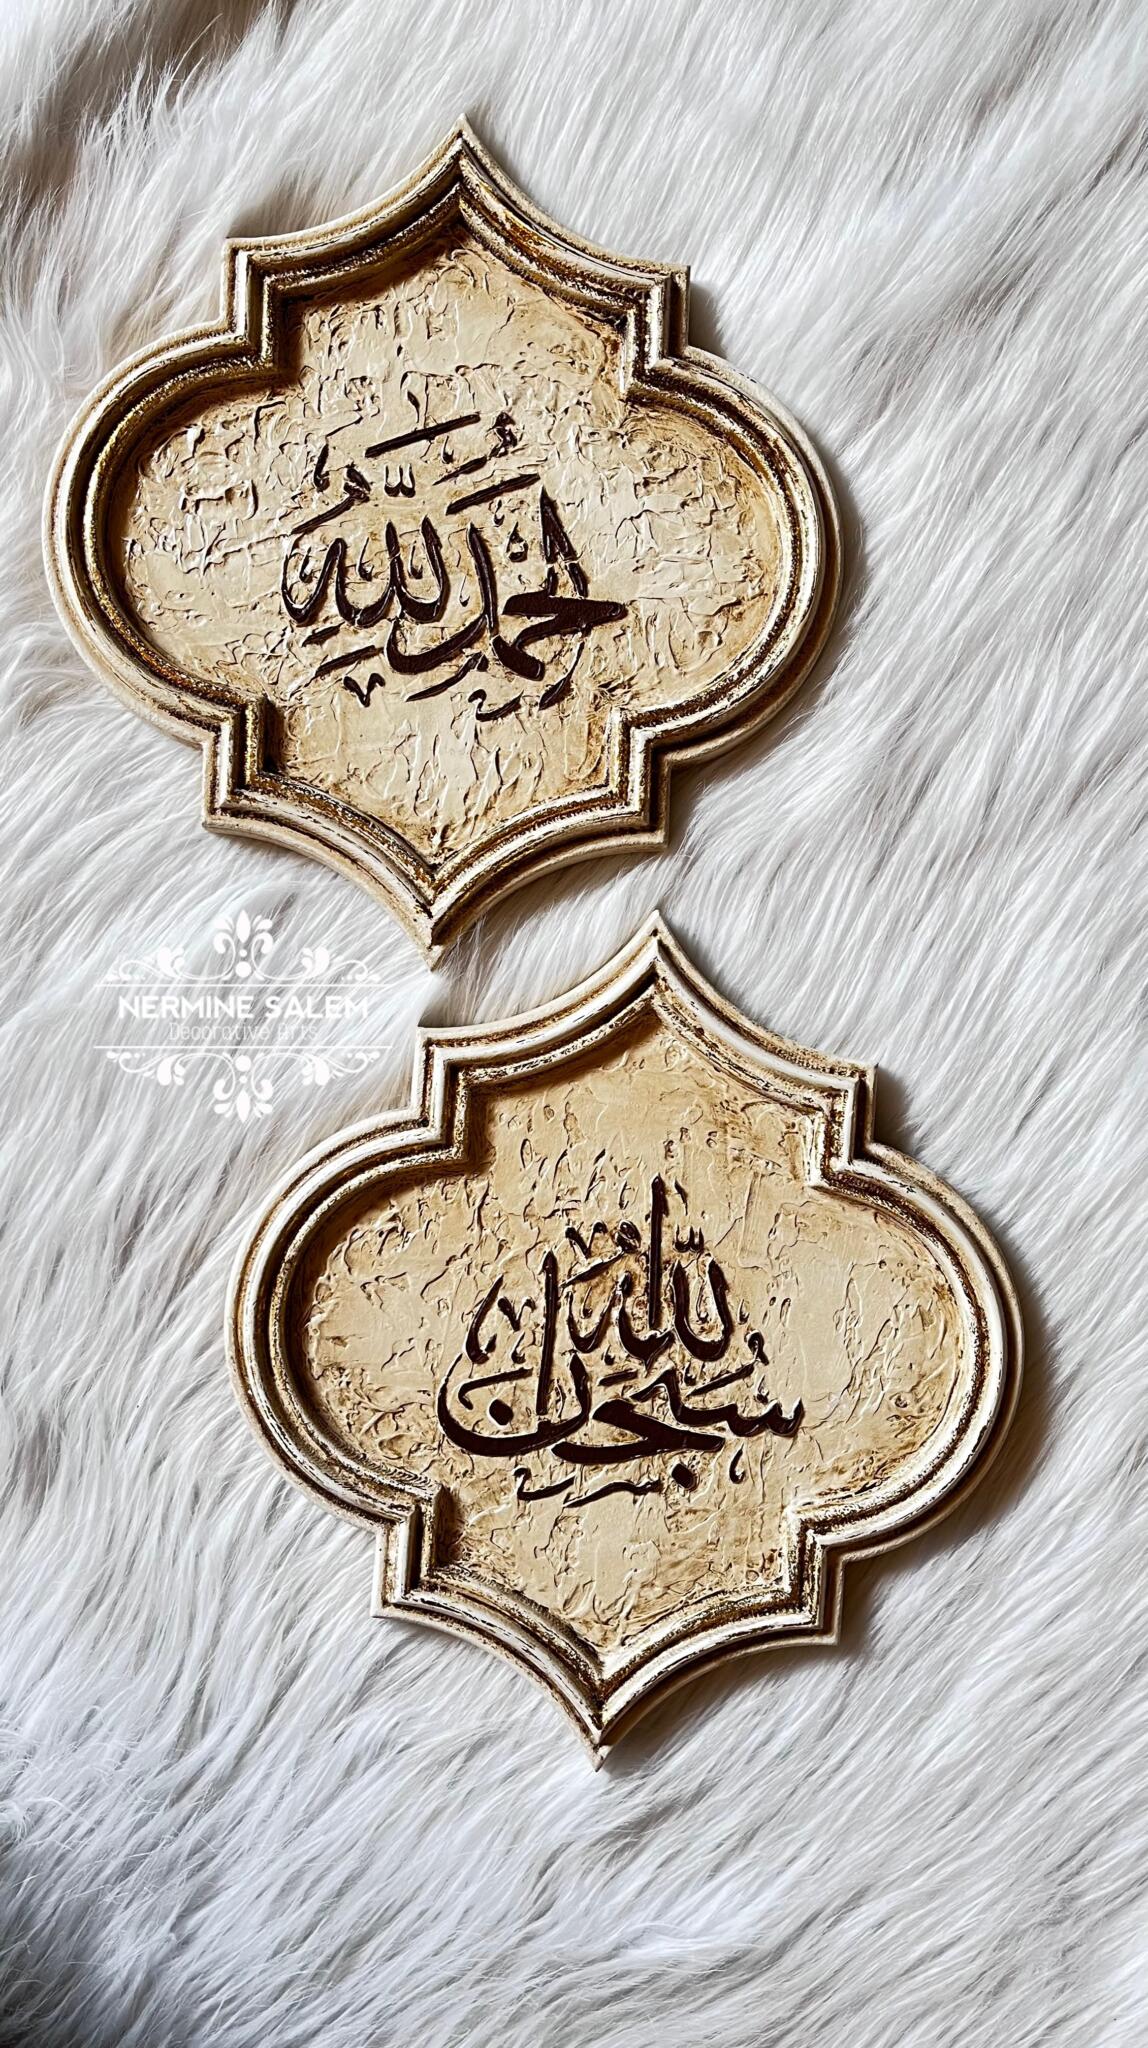 الحمد لله
NERMINE SALEM
Decorative Arts
سبحان الله